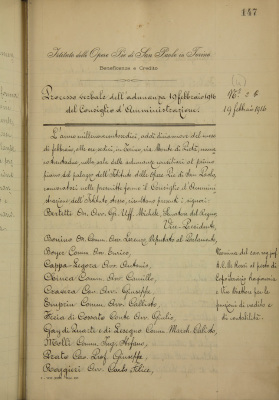 147
Istituto delle Opere Pie di San Paolo in Torino
Beneficenza e Credito
Processo verbale dell'adunanza 19 febbraio 1916
del Consiglio d'Amministrazione.
Nº 2
19 febbraio 1916
L'anno millenovecentosedici, addì diciannove del mese
di febbraio, alle ore sedici, in Torino, via Monte di Pietà, numero
trentadue, nella sala delle adunanze consiliari al primo
piano del palazzo dell'Istituto delle Opere Pie di San Paolo,
convocatosi nelle prescritte forme il Consiglio di Ammini
strazione dell'Istituto stesso, risultano presenti i signori:
Bertetti Gr. Avv. Uff. Michele, Senatore del Regno,
Vice-Presidente,
Bonino Comm. Avv. Lorenzo, Deputato al Parlamento,
Boyer Comm. Avv. Enrico,
Cappa-Legora Avv. Antonio,
Comm. Avv. Camillo,
Cravero Cav. Avv. Giuseppe,
Comm. Avv. Callisto,
di Cossato Conte Avv. Giulio,
Gay di Quarti e di Comm. March. Carlo,
Molli Comm. Ing. Stefano,
Prato Cav. Prof. Giuseppe,
Ruggieri Avv. Carlo Felice,
Nomina del
al posto di